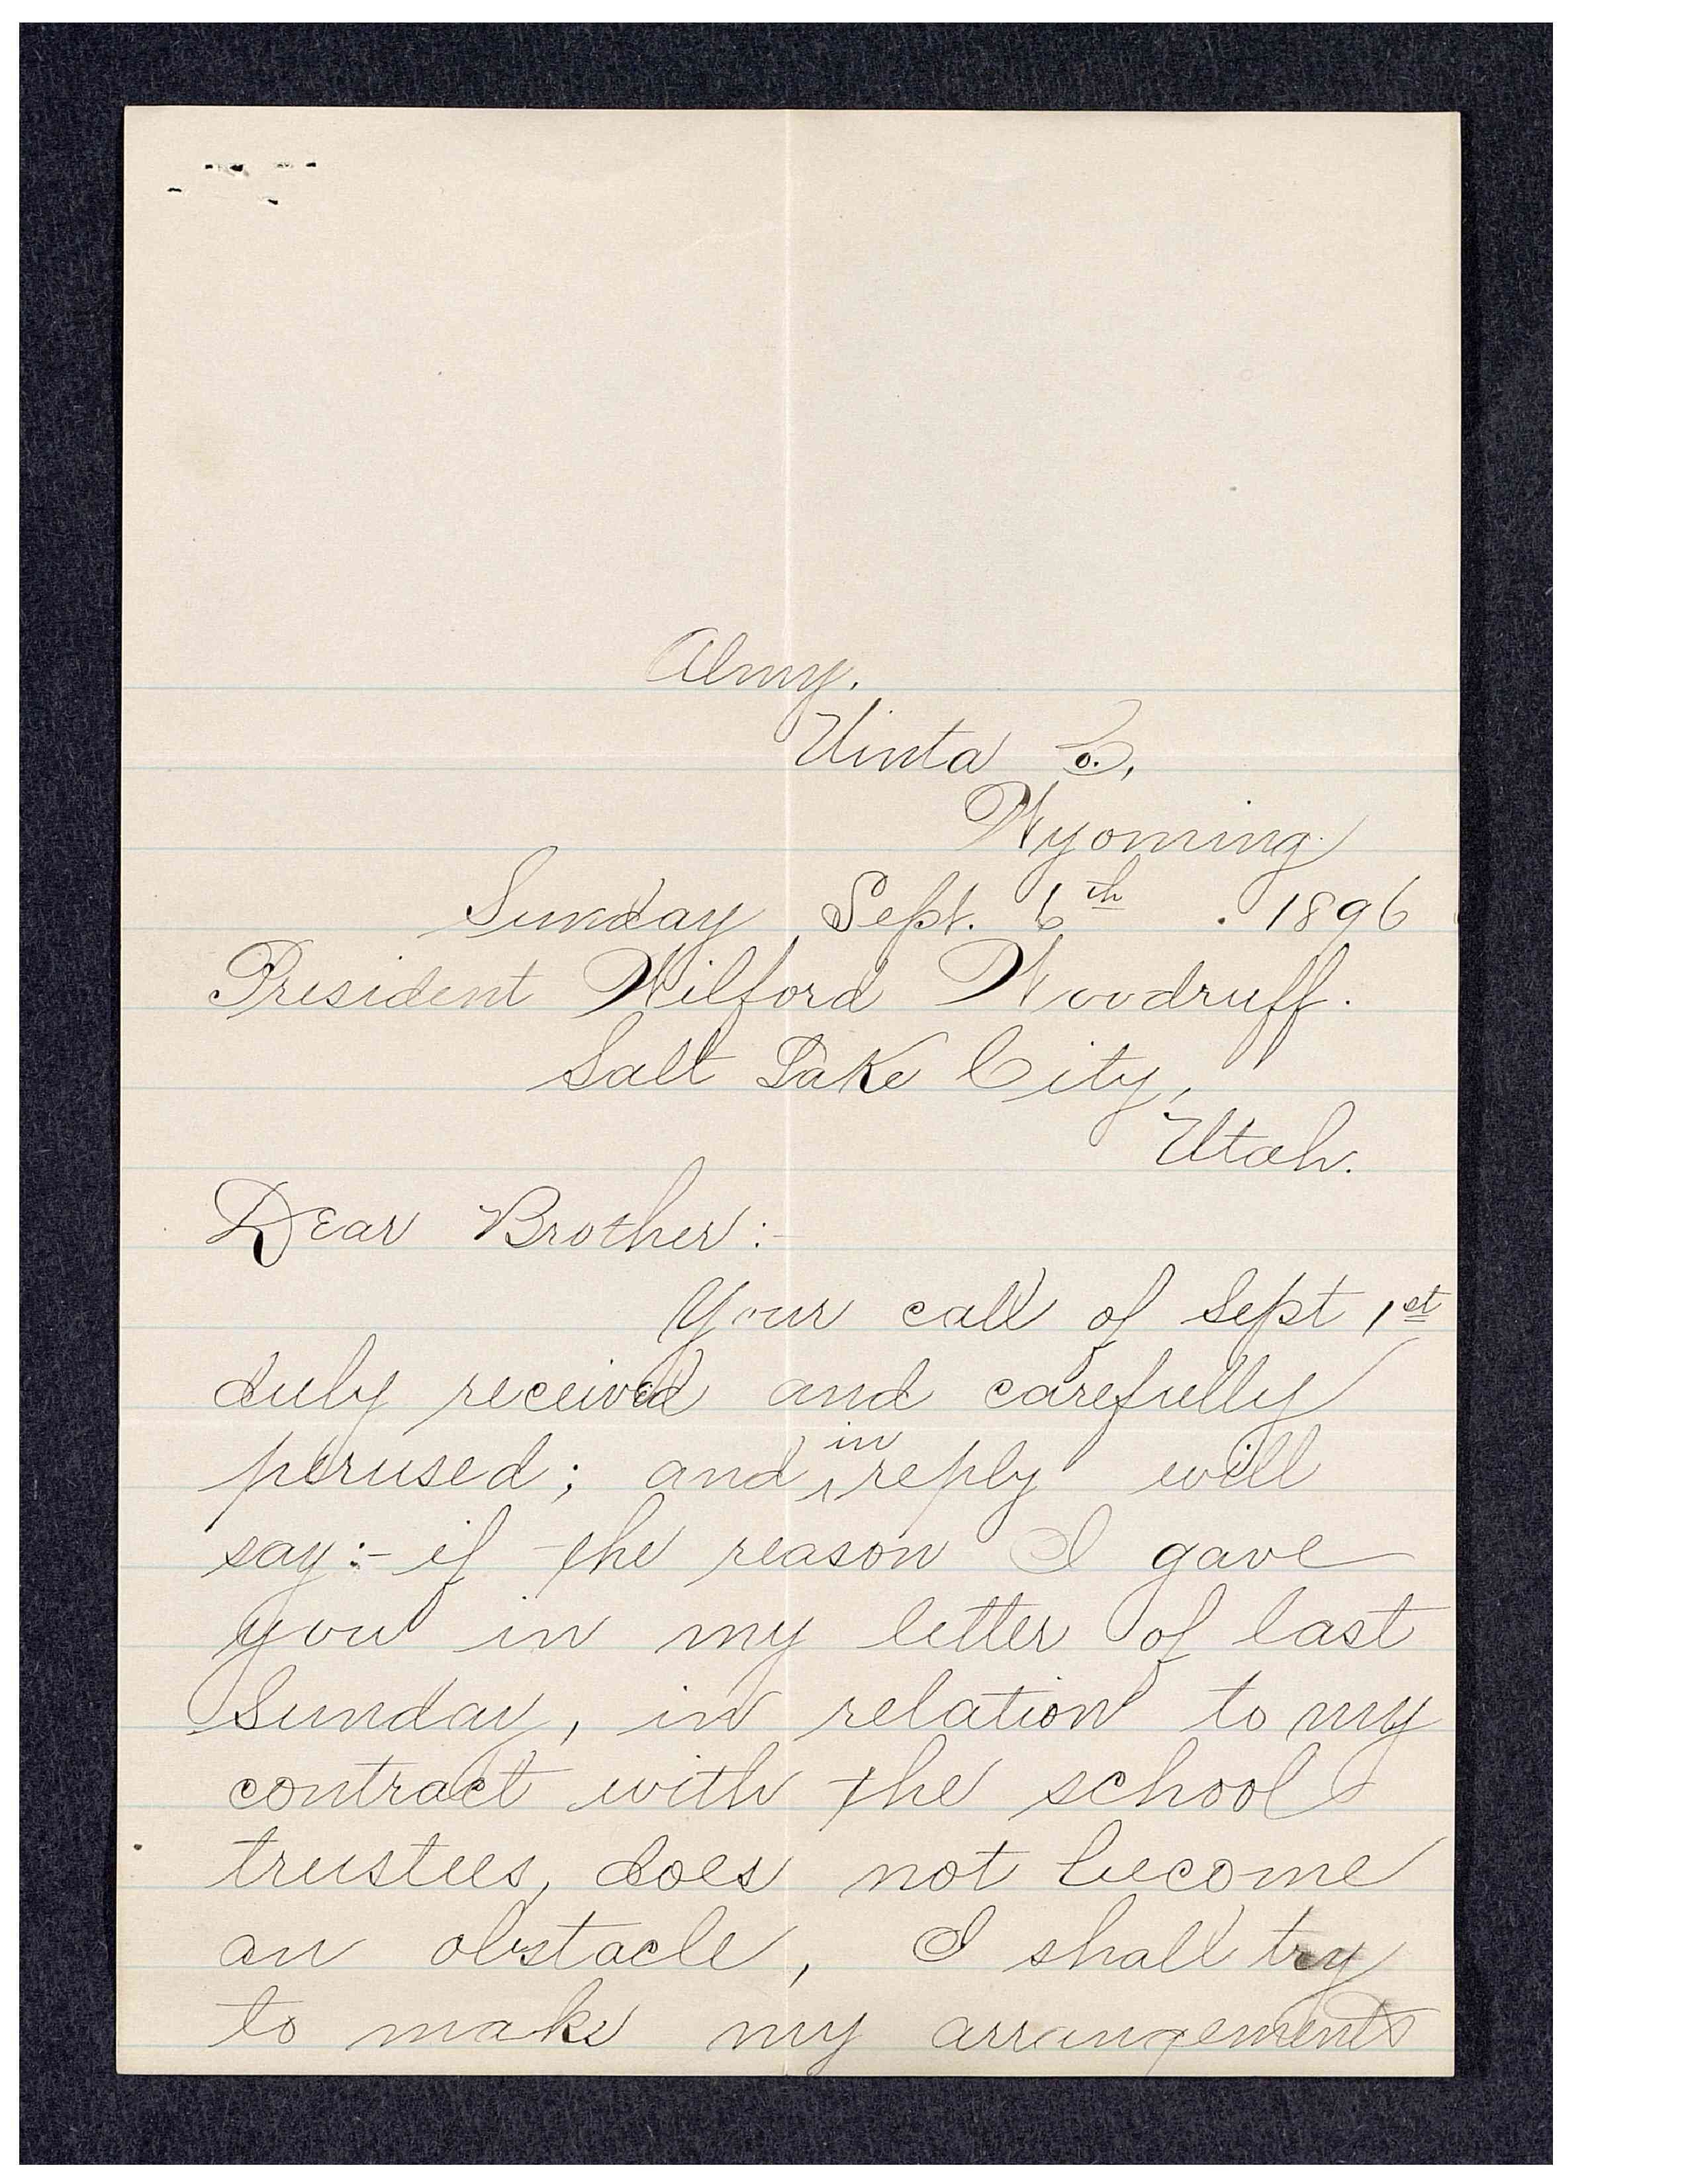 Almy.
Uinta Co.,
Wyoming.
Sunday Sept. 6th. 1896
President Wilford Woodruff.
Salt Lake City,
Utah.
Dear Brother:-
Your call of Sept 1st
duly received and carefully
perused; and in reply will
say:- if the reason I gave
you in my letter of last
Sunday, in relation to my
contract with the school
trustees, does not become
an obstacle, I shall try
to make my arrangements